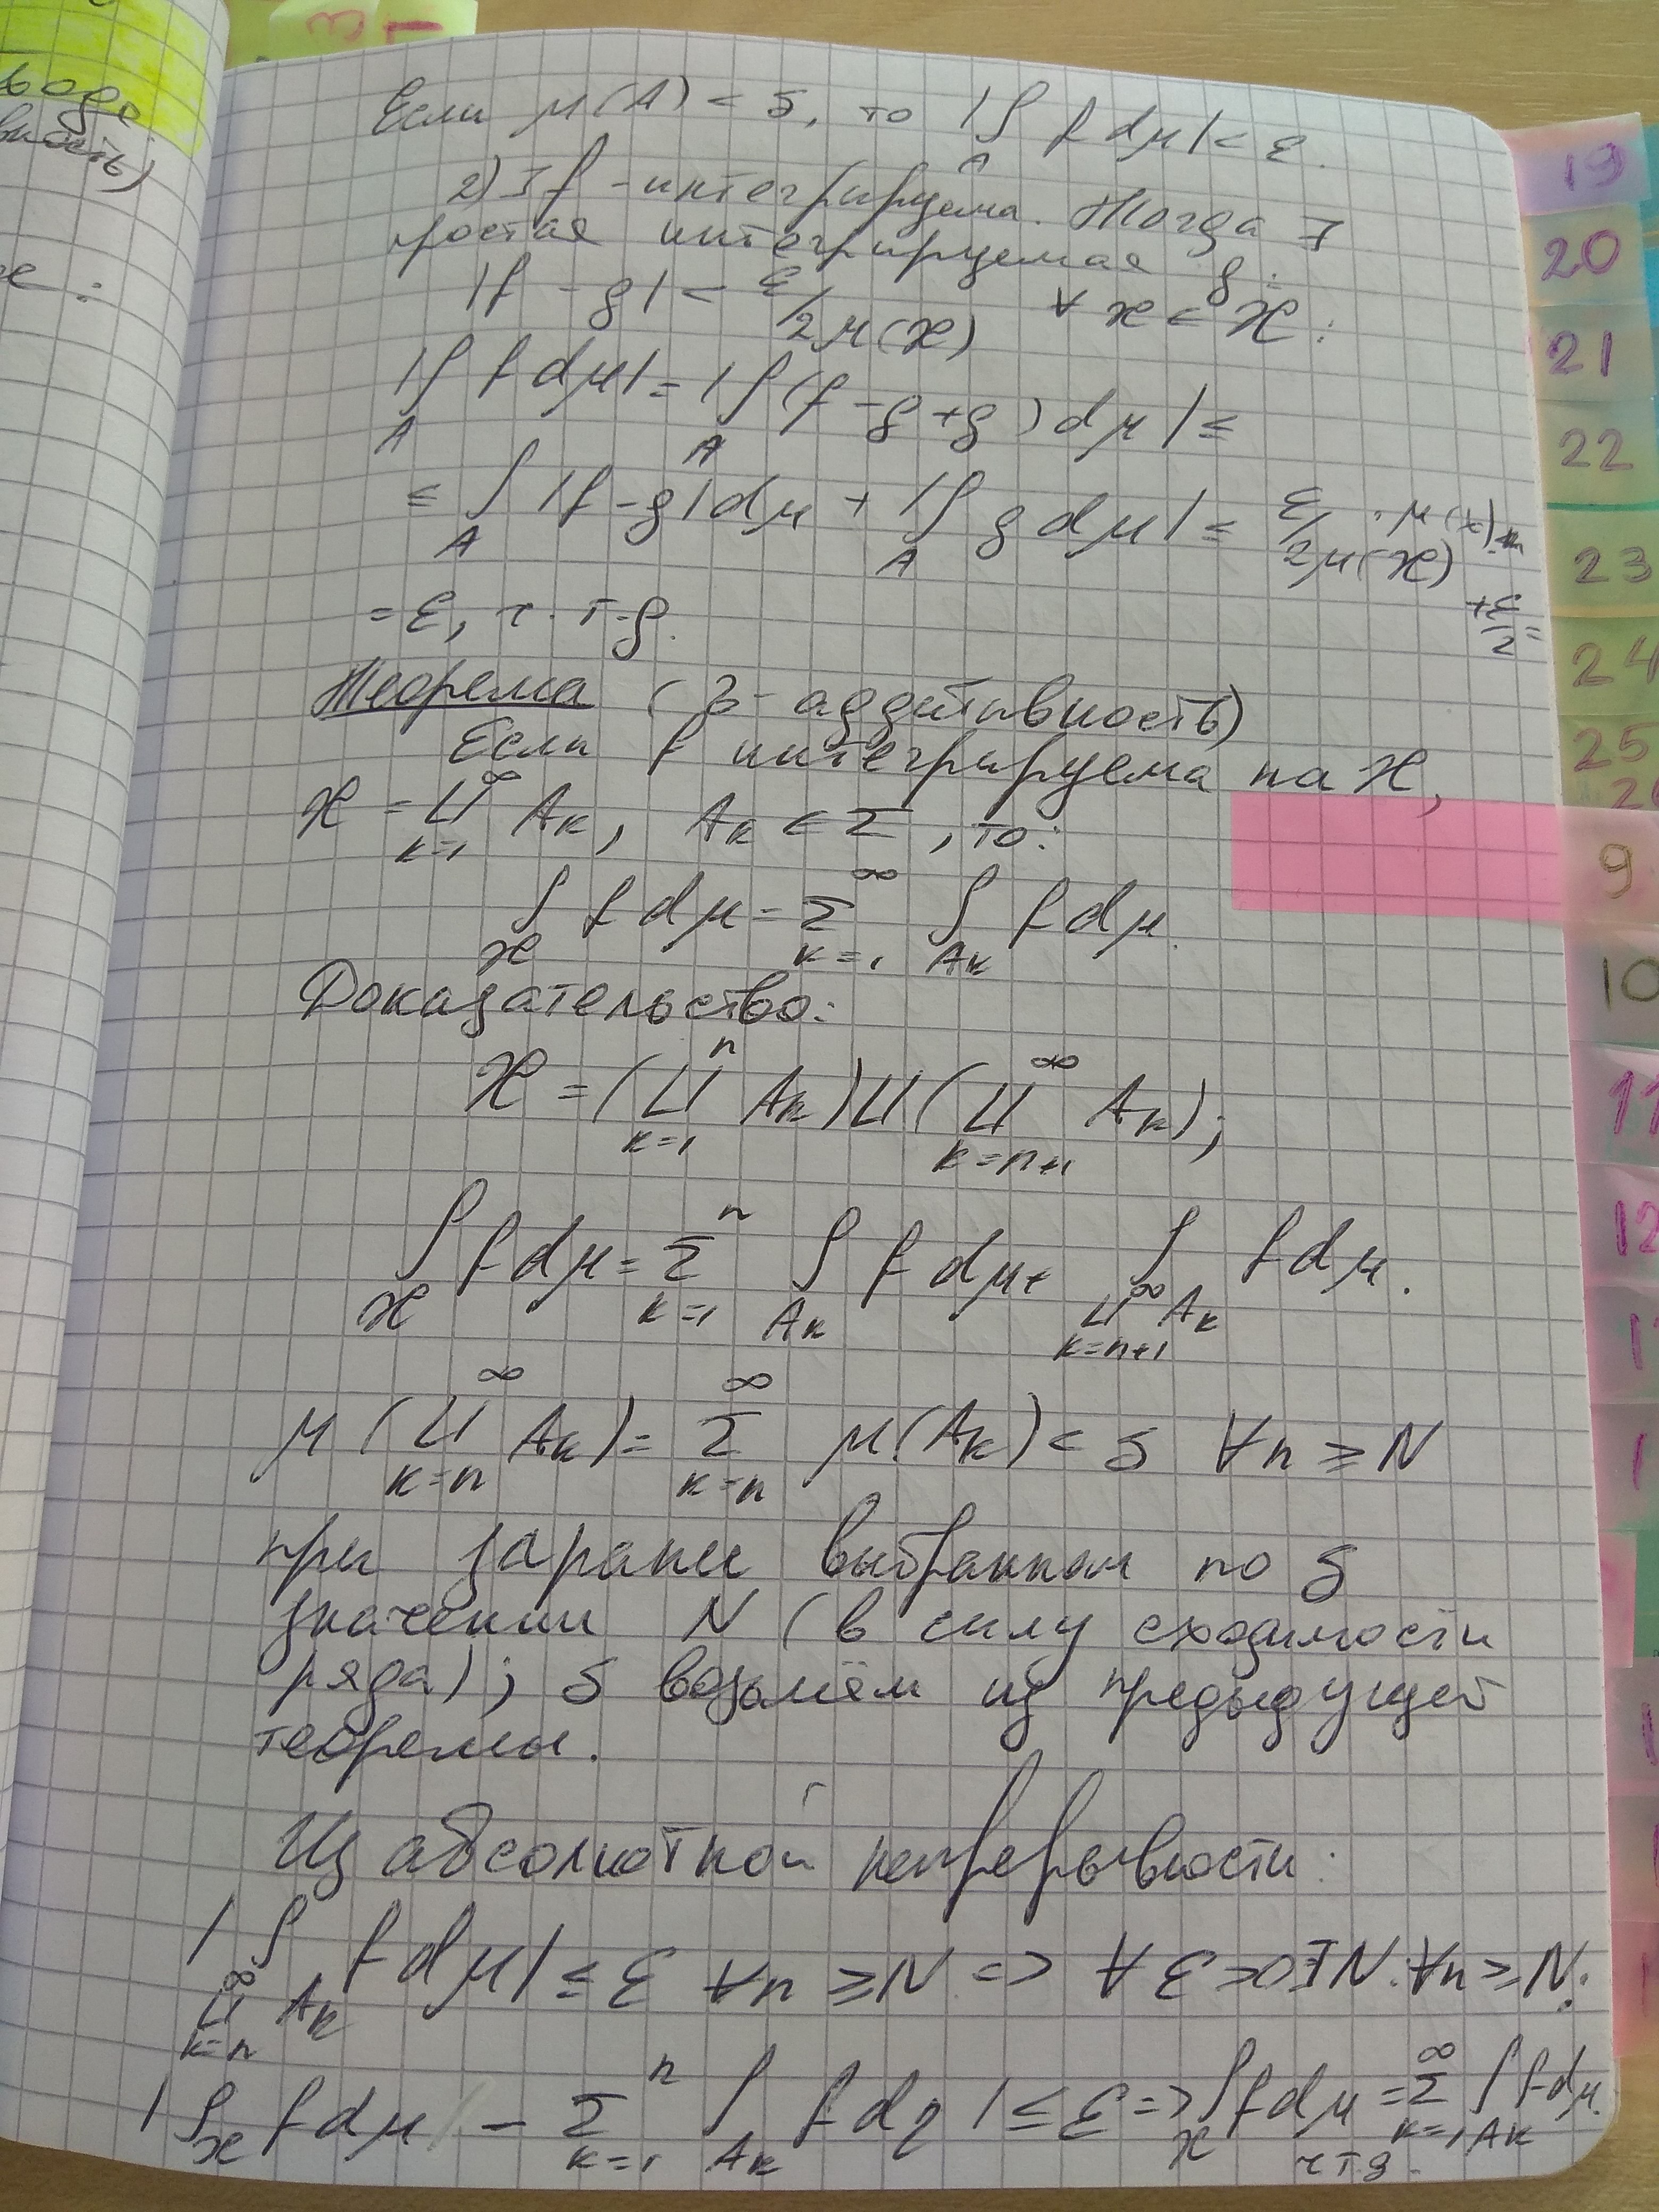 Если μ(A) < δ, то |∫_A f dμ| < ε.
2) ] f - интегрируема. Тогда ∃
простая интегрируемая g:
|f - g| < ε/2μ(𝒳) ∀ x ∈ 𝒳:
|∫_A f dμ| = |∫_A (f - g + g) dμ| ≤
≤ ∫_A |f - g| dμ + |∫_A g dμ| ≤ ε/2μ(𝒳) · μ(𝒳) + ε/2 =
= ε, ч.т.д.
Теорема (σ-аддитивность)
Если f интегрируема на 𝒳,
𝒳 = ⊔_{k=1}^∞ A_k, A_k ∈ Σ, то:
∫_𝒳 f dμ = Σ_{k=1}^∞ ∫_{A_k} f dμ.
Доказательство:
𝒳 = (⊔_{k=1}^n A_k) ⊔ (⊔_{k=n+1}^∞ A_k);
∫_𝒳 f dμ = Σ_{k=1}^n ∫_{A_k} f dμ + ∫_{⊔_{k=n+1}^∞ A_k} f dμ.
μ(⊔_{k=n}^∞ A_k) = Σ_{k=n}^∞ μ(A_k) < δ ∀n ≥ N
при заранее выбранном по δ
значении N (в силу сходимости
ряда); δ возьмём из предыдущей
теоремы.
Из абсолютной непрерывности:
|∫_{⊔_{k=n}^∞ A_k} f dμ| ≤ ε ∀n ≥ N => ∀ε>0 ∃N: ∀n ≥ N:
|∫_𝒳 f dμ - Σ_{k=1}^n ∫_{A_k} f dμ| ≤ ε => ∫_𝒳 f dμ = Σ_{k=1}^∞ ∫_{A_k} f dμ.
чтд.
19
20
21
22
23
24
25
9
10
11
12